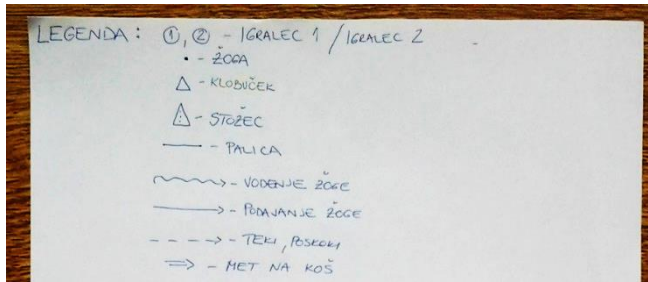 LEGENDA: ①, ② - IGRALEC 1 / IGRALEC 2
• - ŽOGA
△ - KLOBUČEK
△ - STOŽEC
— - PALICA
→ - VODENJE ŽOGE
→ - PODAJANJE ŽOGE
---→ - TEKI, POSKOKI
⇒ - MET NA KOŠ